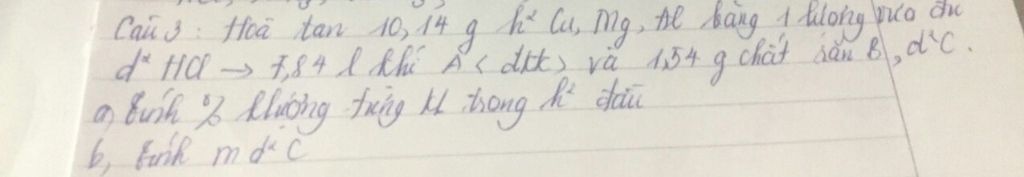 Câu 3: Hoà tan 10,14 g h² Cu, Mg, Al bằng 1 lượng vừa đủ
d² HCl → 7,84 l khí A < đktc > và 1,54 g chất rắn B, d²C.
a, Tính % klượng từng kl trong h² đầu
b, Tính m d² C